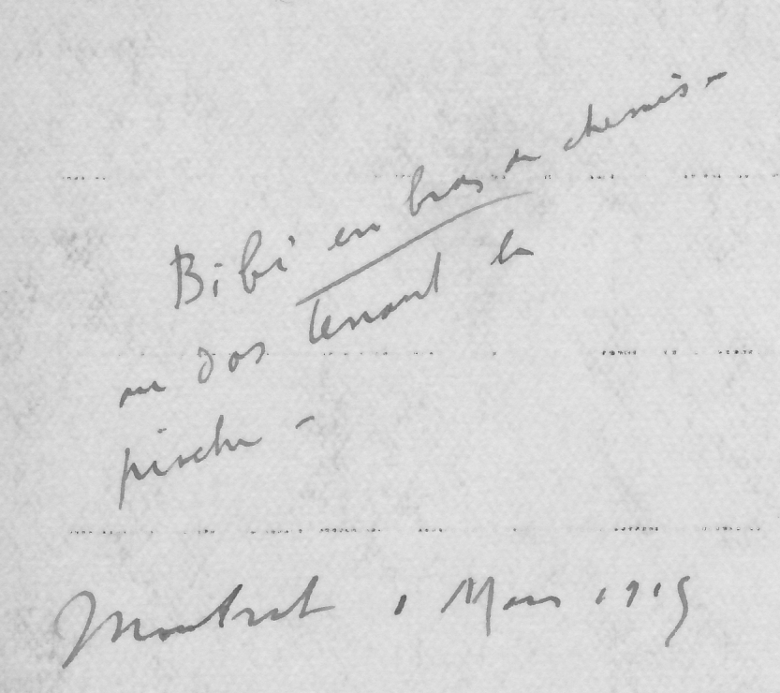 Bibi en bras de chemise -
au dos tenant la
pioche -
1 Mars 1915